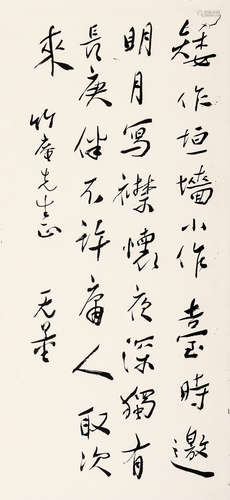 矮作垣墙小作臺時邀
明月寫襟懷夜深獨有
長庚伴不許庸人取次
來
竹庵先生正 无量